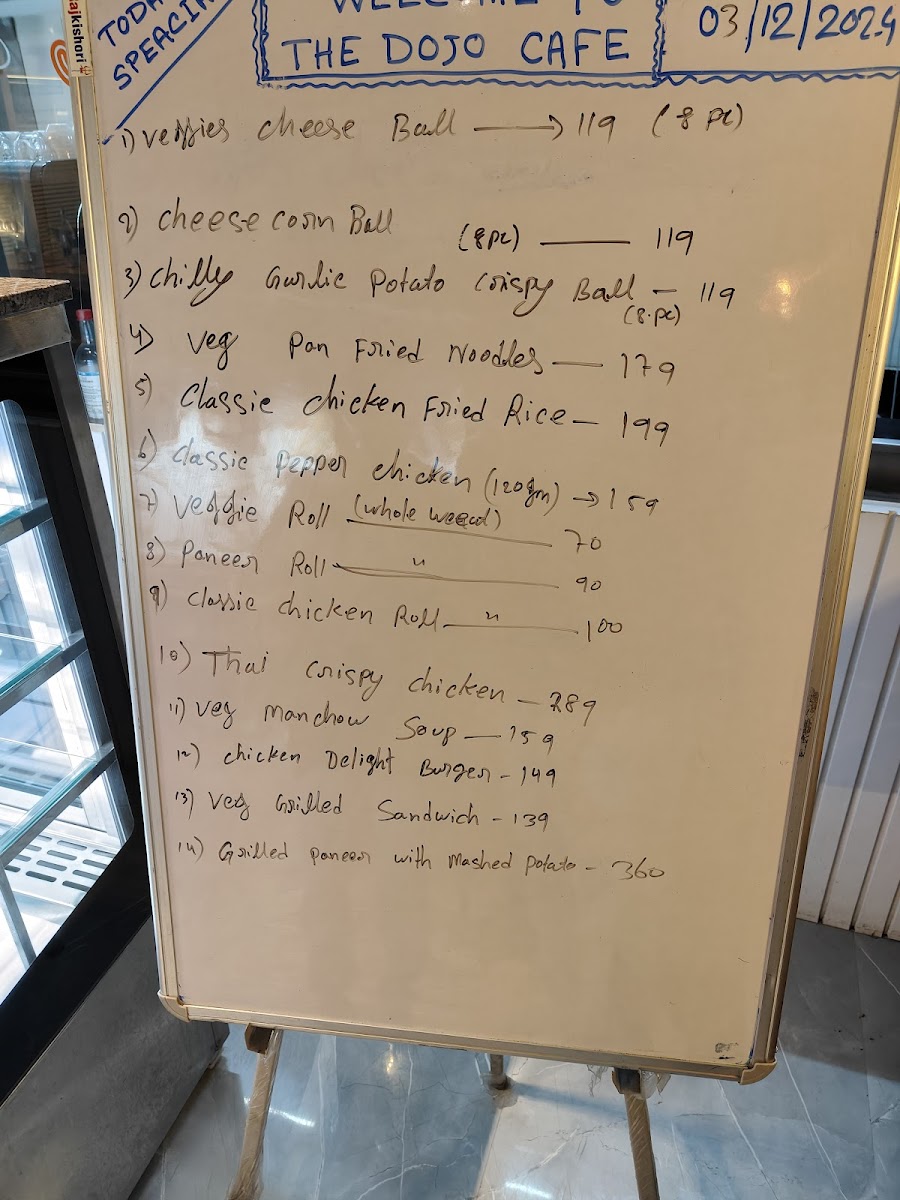 ajkishori
TODA
SPEACIA
WELCOME TO
THE DOJO CAFE
03/12/2024
1) veggies cheese Ball → 119 (8 pc)
2) cheese corn Ball (8pc) — 119
3) chilly Garlic Potato crispy Ball — 119
(8.pc)
4) veg Pan Fried Noodles — 179
5) Classic chicken Fried Rice — 199
6) classic pepper chicken (120gm) → 159
7) veggie Roll (whole weed) — 70
8) Paneer Roll — " — 90
9) classic chicken Roll — " — 100
10) Thai crispy chicken — 289
11) veg manchow Soup — 159
12) chicken Delight Burger - 149
13) veg Grilled Sandwich - 139
14) Grilled paneer with mashed potato - 360